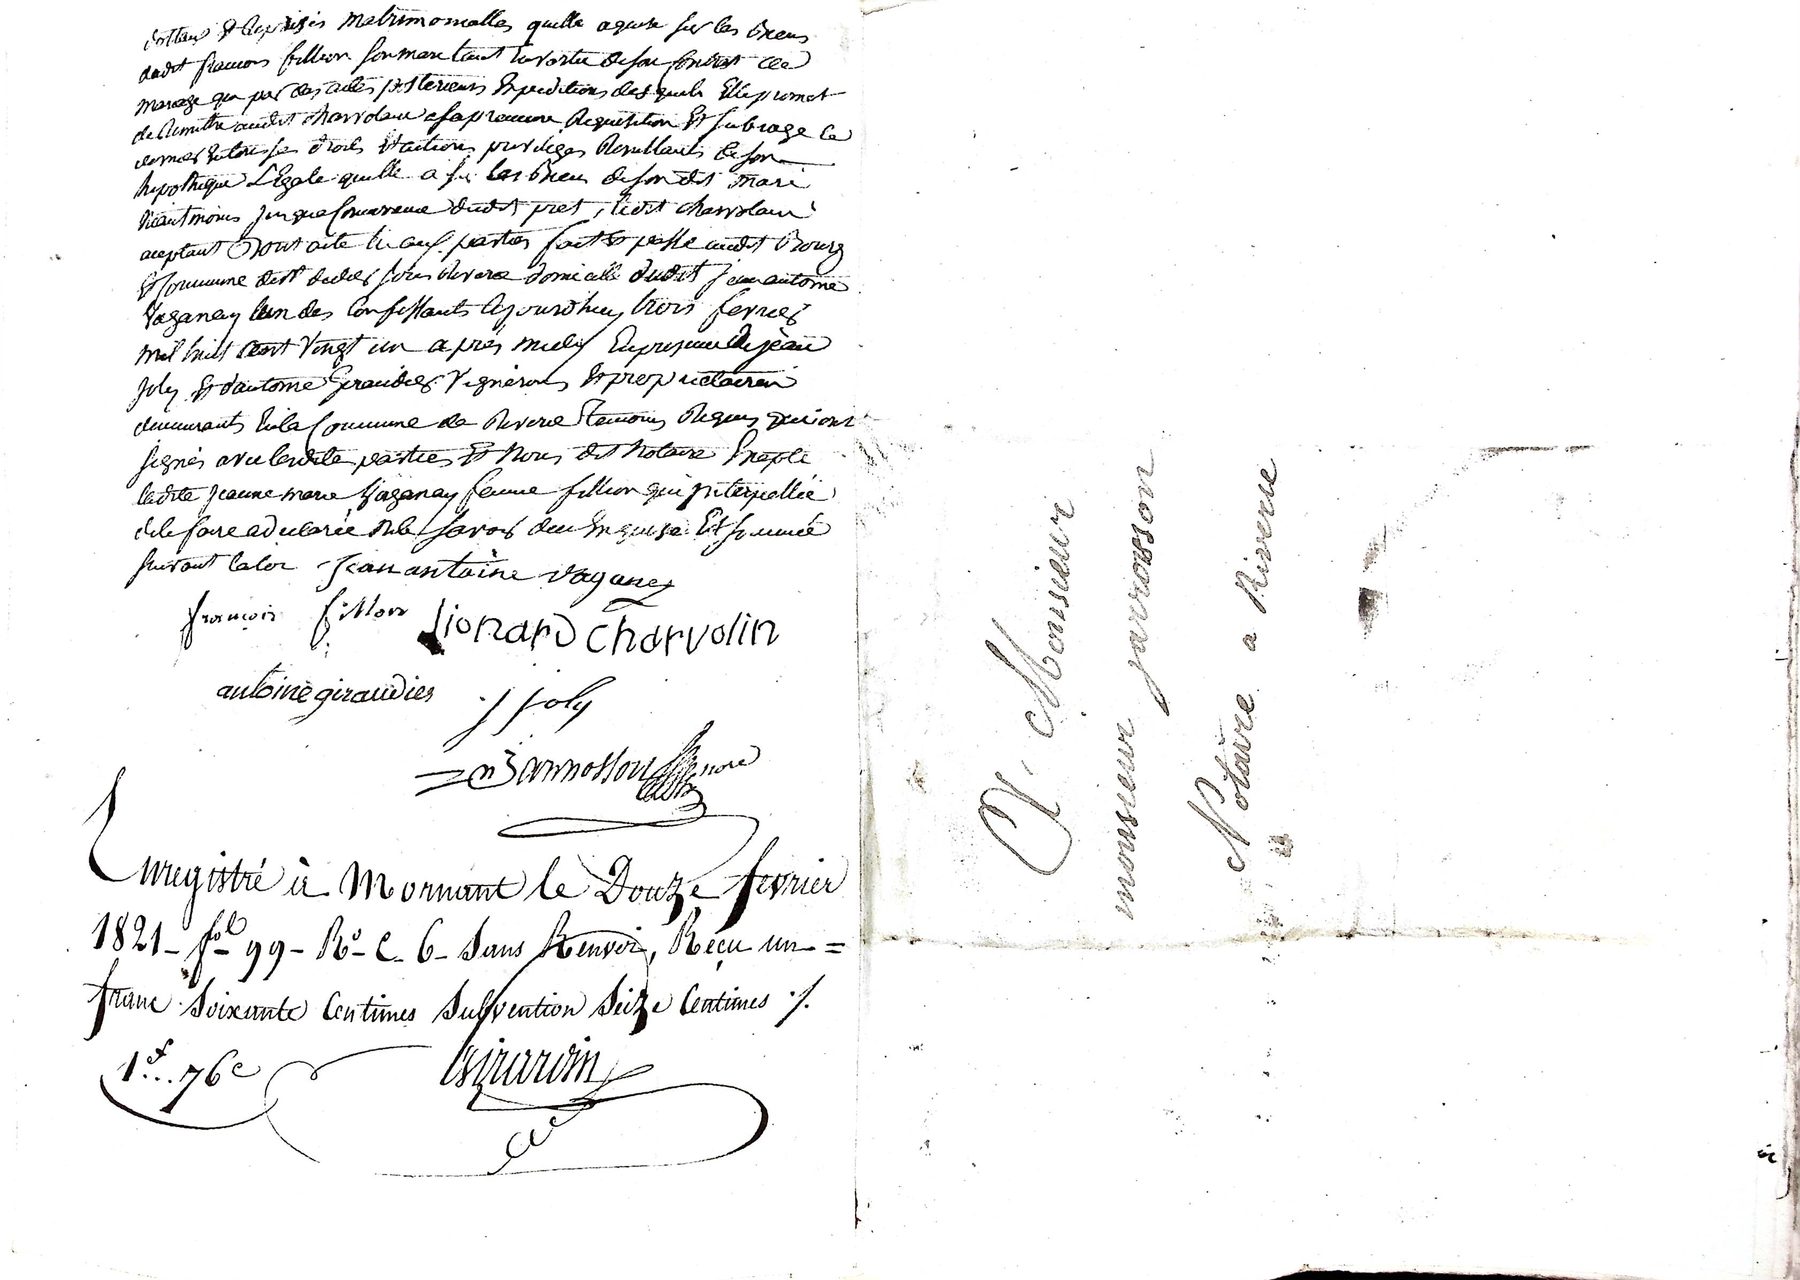 et Reprises matrimonialles quelle a sur les biens
dudit francois fillion son mari tant en vertu de son contrat de
mariage que par des actes posterieurs Expeditions desquels Elle promet
de Remettre audit charvolain a sa premiere Requisition Et subroge ce
dernier en tous ses droits Et actions privileges Resultants de son
hipotheque Légale quelle a sur les biens de son dit mari
neantmoins jusqua Concurrence dudit pret, ledit charvolain
aceptant Dont acte lu aux parties fait Et passé audit Bourg
Et Commune de Riverie domicille dudit jean antoine
Vaganay lun des Confessants Cejourdhuy trois fevrier
mil huit Cent Vingt un apres midy En presence de jean
joly Et d'antoine Giraudier Vignerons Et proprietaires
demeurants En la Commune de Riverie temoins Requis qui ont
signés avec lesdites parties Et Nous dit Notaire Excepté
ladite jeanne marie Vaganay femme fillion qui jnterpellée
de le faire a declarée ne le savoir de ce Enquise Et sommée
suivant la loi jean antoine vaganay
francois fillon lionard charvolin
antoine giraudier j joly
Jarrosson
Enregistré à Mornant le Douze fevrier
1821 - f.º 99 - Rº - C. 6 - Sans Renvoi, Reçu un =
franc Soixante Centimes Subvention Seize Centimes ./.
1f... 76c
Girardin
A Monsieur
monsieur jarrosson
Notaire a Riverie